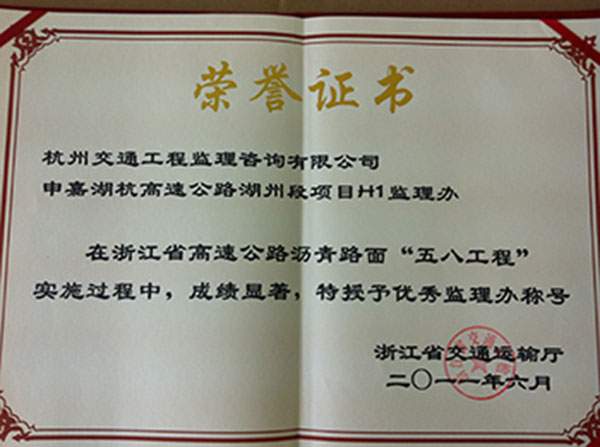 荣誉证书
杭州交通工程监理咨询有限公司
申嘉湖杭高速公路湖州段项目H1监理办
在浙江省高速公路沥青路面“五八工程”
实施过程中，成绩显著，特授予优秀监理办称号
浙江省交通运输厅
二〇一一年六月